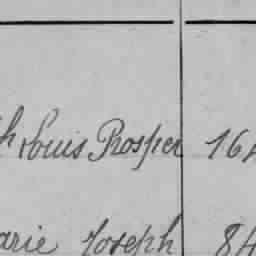 h Louis Prosper 164
arie Joseph 84